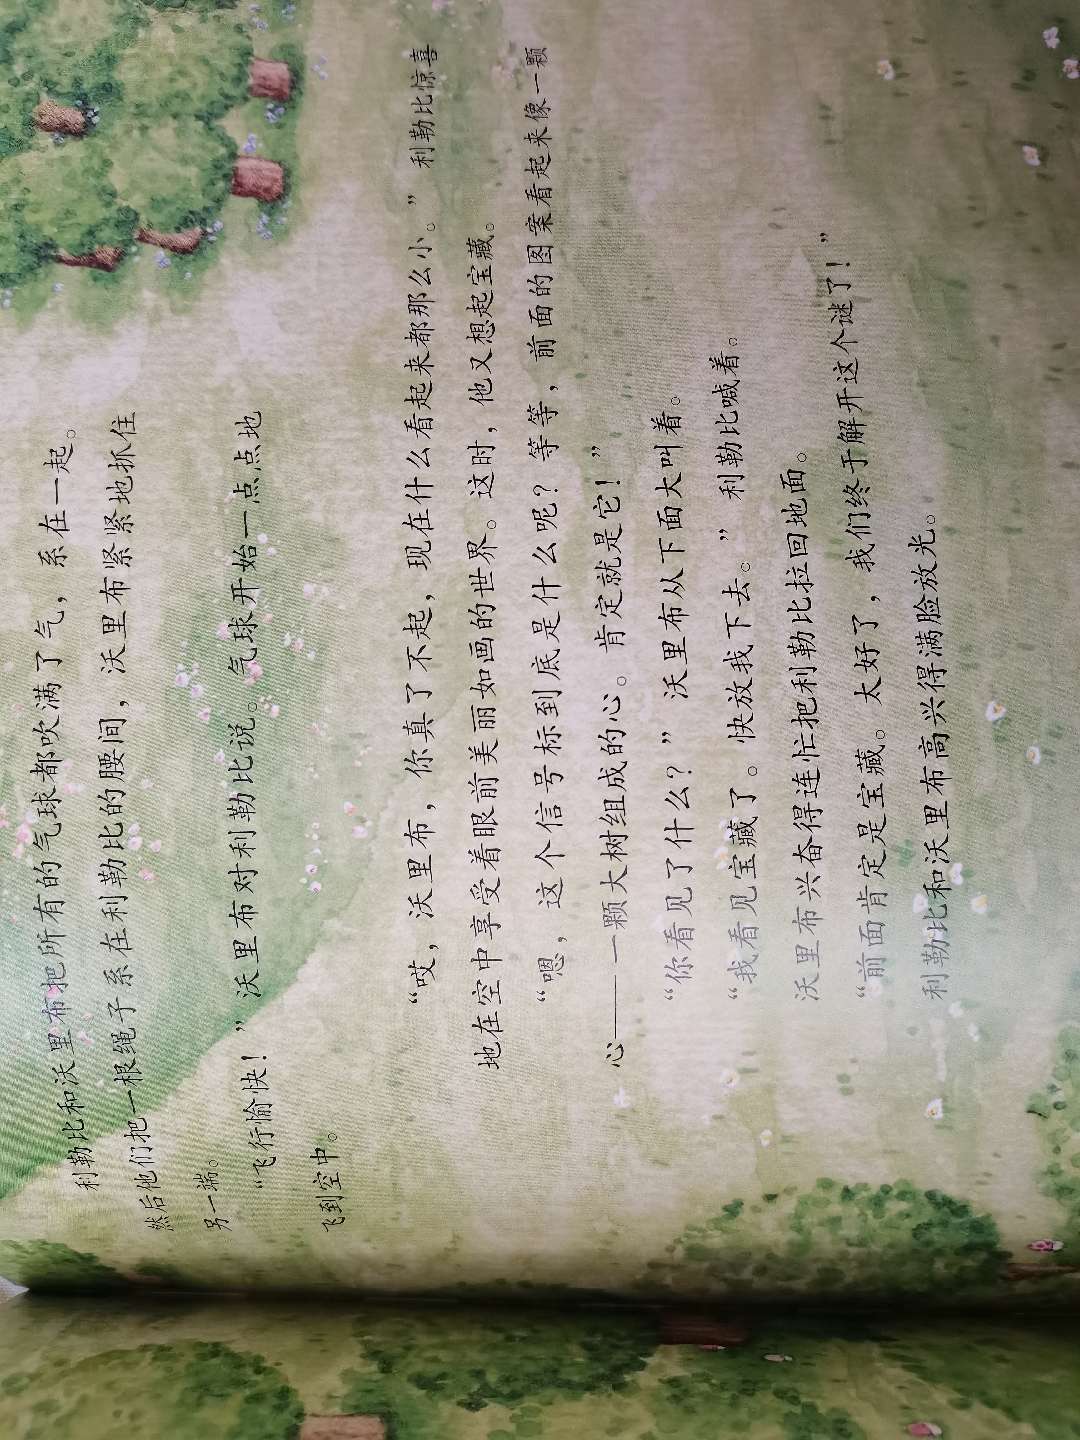 利勒比和沃里布把所有的气球都吹满了气，系在一起。
然后他们把一根绳子系在利勒比的腰间，沃里布紧紧地抓住
另一端。
“飞行愉快！”沃里布对利勒比说。气球开始一点点地
飞到空中。
“哎，沃里布，你真了不起，现在什么看起来都那么小。”利勒比惊喜
地在空中享受着眼前美丽如画的世界。这时，他又想起宝藏。
“嗯，这个信号标到底是什么呢？等等，前面的图案看起来像一颗
心——一颗大树组成的心。肯定就是它！”
“你看见了什么？”沃里布从下面大叫着。
“我看见宝藏了。快放我下去。”利勒比喊着。
沃里布兴奋得连忙把利勒比拉回地面。
“前面肯定是宝藏。太好了，我们终于解开这个谜了！”
利勒比和沃里布高兴得满脸放光。